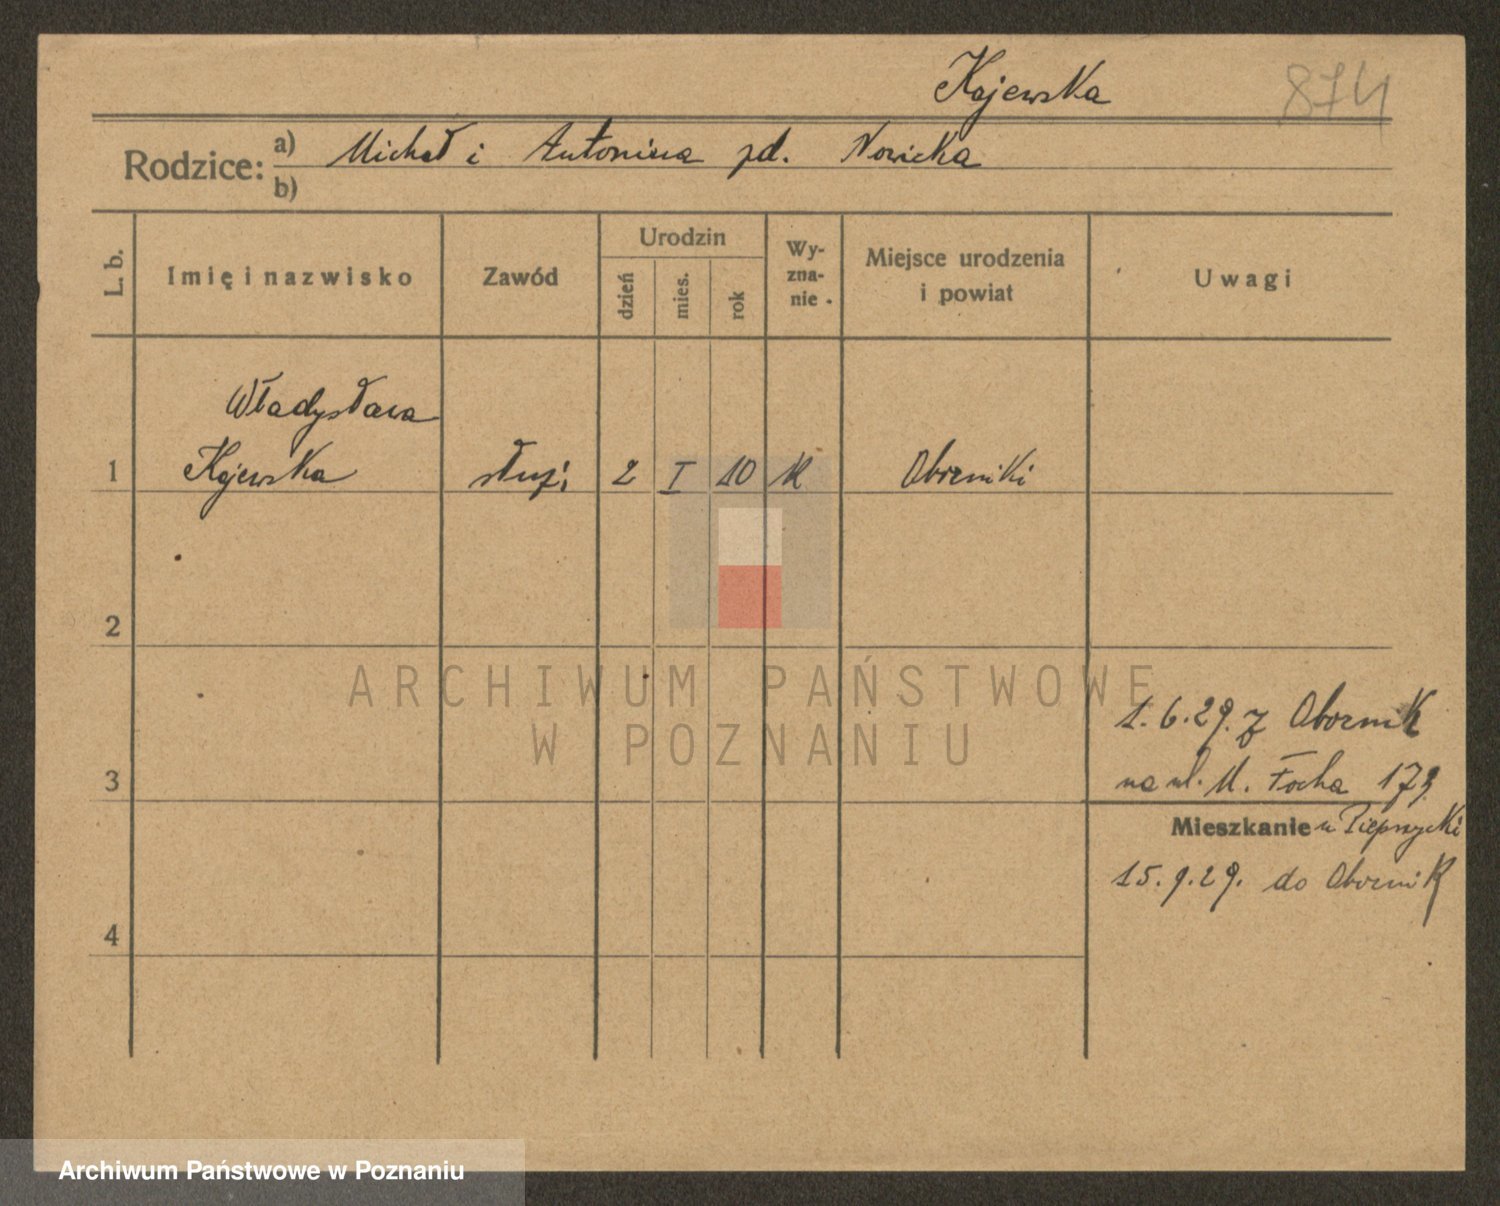 Kajewska
874
Rodzice: a) Michał i Antonina zd. Nowicka
b)
L. b. Imię i nazwisko Zawód Urodzin dzień mies. rok Wyznanie. Miejsce urodzenia i powiat Uwagi
Władysława
1 Kajewska służ. 2 I 10 K Oborniki
2
ARCHIWUM PAŃSTWOWE
W POZNANIU
1.6.29. z Obornik
3 na ul. M. Focha 173
Mieszkanie u Pieprzycki
15.9.29. do Obornik
4
Archiwum Państwowe w Poznaniu